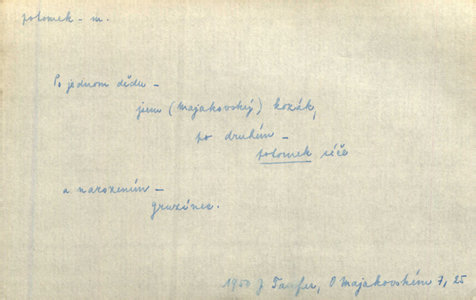 potomek - m.
Po jednom dědu -
jsem (Majakovský) kozák,
po druhém -
potomek séče
a narozením -
gruzínec.
1950 J Taufer, O Majakovském 7, 25